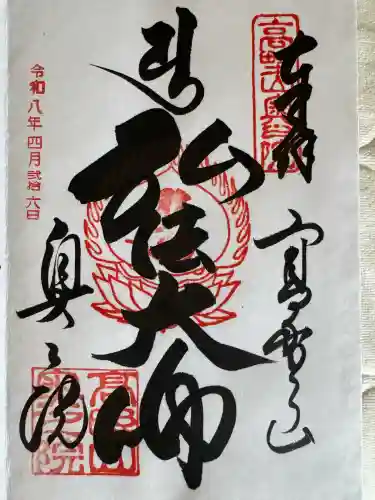 奉拝
高野山
弘法大師
奥之院
令和八年四月弐拾六日
高野山奥之院
高野山
奥之院